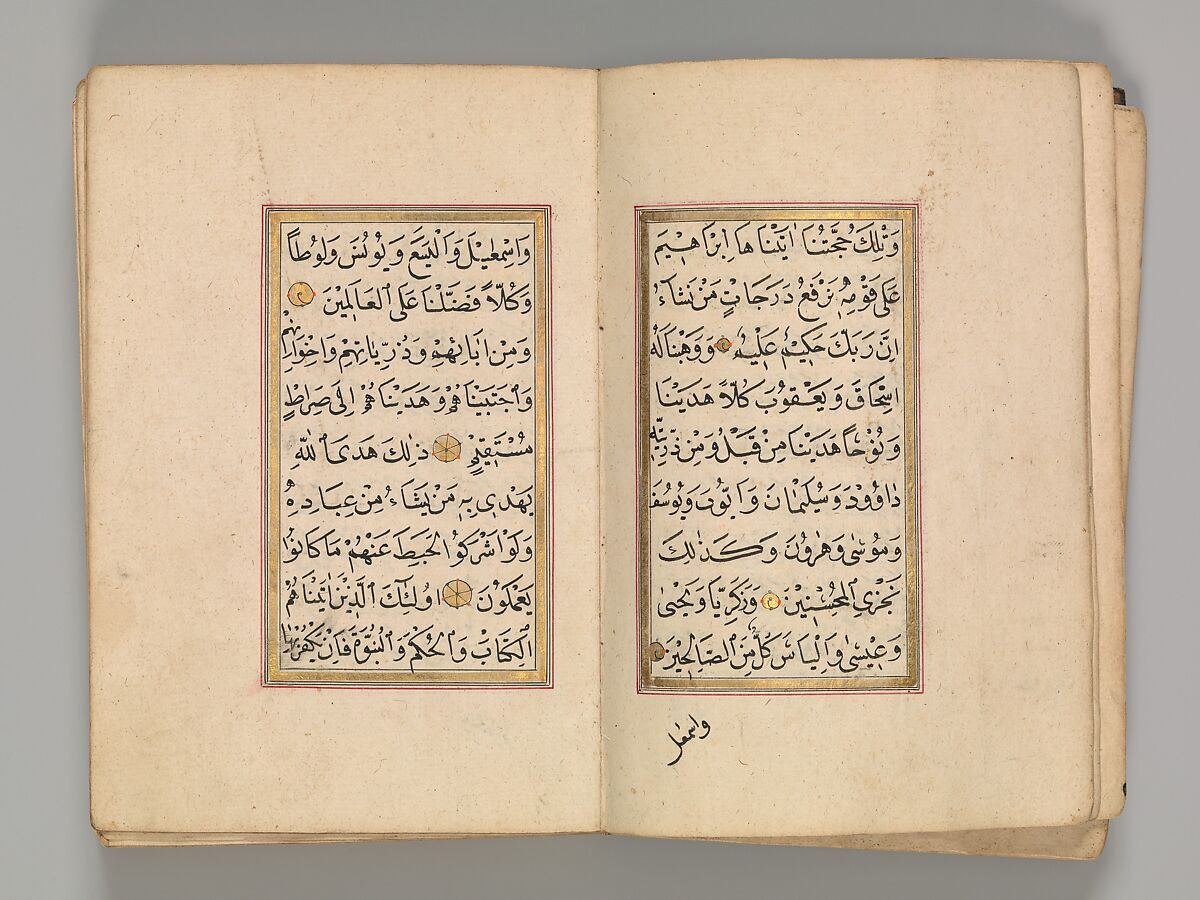 وَتِلْكَ حُجَّتُنَا اٰتَيْنَاهَا اِبْرٰاهٖيمَ
عَلٰى قَوْمِهٖ نَرْفَعُ دَرَجَاتٍ مَنْ نَشَٓاءُ
اِنَّ رَبَّكَ حَكِيمٌ عَلٖيمٌ وَوَهَبْنَا لَهُٓ
اِسْحَاقَ وَيَعْقُوبَ كُلّاً هَدَيْنَا
وَنُوحاً هَدَيْنَا مِنْ قَبْلُ وَمِنْ ذُرِّيَّتِهٖ
دَاوُودَ وَسُلَيْمٰانَ وَاَيُّوبَ وَيُوسُفَ
وَمُوسٰى وَهٰرُونَ وَكَذٰلِكَ
نَجْزِى الْمُحْسِنٖينَ وَزَكَرِيَّا وَيَحْيٰى
وَعٖيسٰى وَاِلْيَاسَ كُلٌّ مِنَ الصَّالِحٖينَ
واسمعيل
وَاِسْمٰعٖيلَ وَالْيَسَعَ وَيُونُسَ وَلُوطاً
وَكُلّاً فَضَّلْنَا عَلَى الْعَالَمٖينَ
وَمِنْ اٰبَٓائِهِمْ وَذُرِّيَّاتِهِمْ وَاِخْوَانِهِمْ
وَاجْتَبَيْنَاهُمْ وَهَدَيْنَاهُمْ اِلٰى صِرَاطٍ
مُسْتَقٖيمٍ ذٰلِكَ هُدَى اللّٰهِ
يَهْدٖى بِهٖ مَنْ يَشَٓاءُ مِنْ عِبَادِهٖ
وَلَوْ اَشْرَكُوا لَحَبِطَ عَنْهُمْ مَا كَانُوا
يَعْمَلُونَ اُولٰٓئِكَ الَّذٖينَ اٰتَيْنَاهُمُ
الْكِتَابَ وَالْحُكْمَ وَالنُّبُوَّةَ فَاِنْ يَكْفُرْ بِهَا